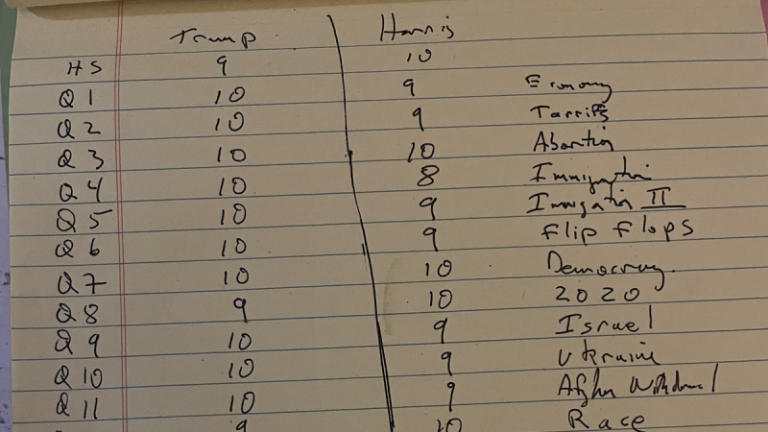 Trump Harris
HS 9 10
Q1 10 9 Economy
Q2 10 9 Tarrifs
Q3 10 10 Abortion
Q4 10 8 Immigration
Q5 10 9 Immigration II
Q6 10 9 Flip Flops
Q7 10 10 Democracy
Q8 9 10 2020
Q9 10 9 Israel
Q10 10 9 Ukraine
Q11 10 9 Afghan Withdrawl
9 10 Race